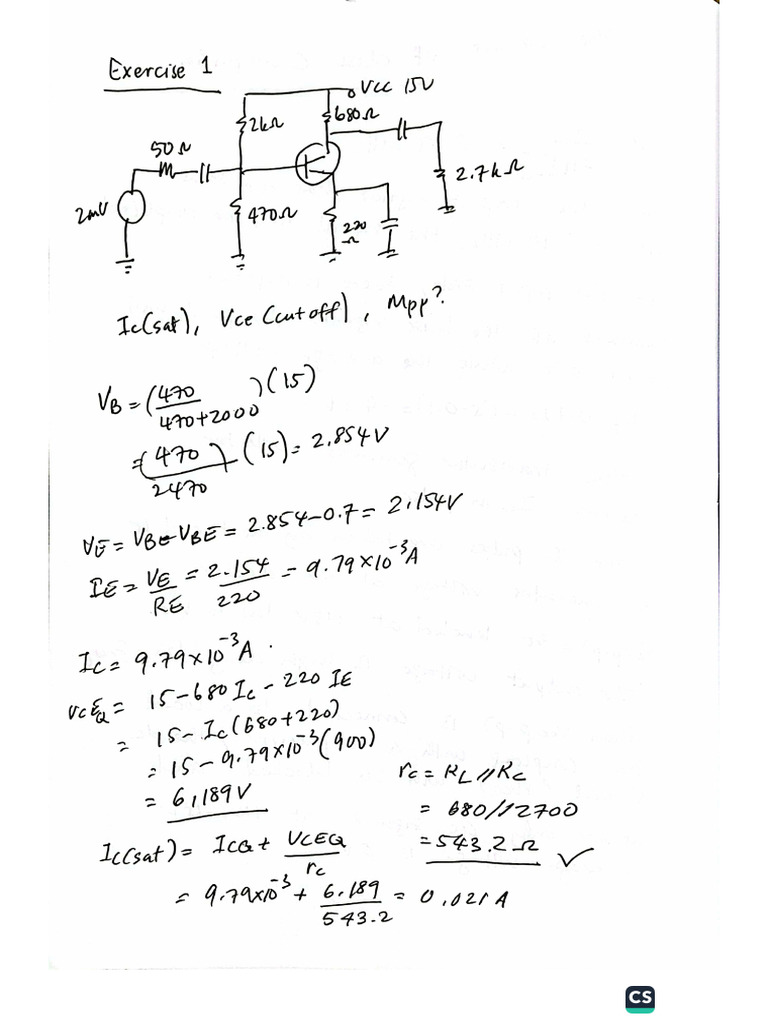 Exercise 1
VCC 15V
680Ω
2kΩ
50Ω
2.7kΩ
2mV
470Ω
220
Ω
Ic(sat), Vce (cutoff), Mpp?
VB = (470/470+2000)(15)
= (470/2470)(15) = 2.854V
VE = VB - VBE = 2.854-0.7 = 2.154V
IE = VE/RE = 2.154/220 = 9.79×10⁻³A
Ic = 9.79×10⁻³A.
VCEQ = 15-680 Ic - 220 IE
= 15- Ic(680+220)
= 15 - 9.79×10⁻³(900)
= 6.189V
rc = RL//RC
= 680//2700
= 543.2Ω ✓
Ic(sat) = ICQ + VCEQ/rc
= 9.79×10⁻³ + 6.189/543.2 = 0.021 A
CS